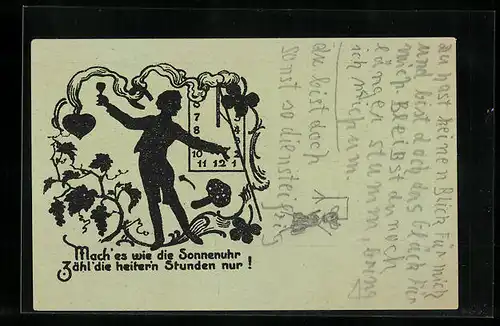 6
7
8
10
11 12 1
Mach' es wie die Sonnenuhr
Zähl' die heitern Stunden nur!
du hast keinen Blick für mich
und bist doch das Glück für
mich. Bleibst du noch
länger stumm, bring
ich mich um.
du bist doch
sonst so diensteifrig